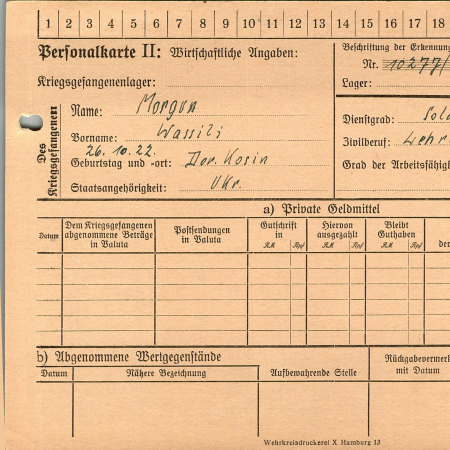 1 2 3 4 5 6 7 8 9 10 11 12 13 14 15 16 17 18
Personalkarte II: Wirtschaftliche Angaben:
Beschriftung der Erkennun
Nr. 10277/
Kriegsgefangenenlager:
Lager:
Des Kriegsgefangenen
Name: Morgun
Vorname: Wassili
Dienstgrad: Sold
Zivilberuf: Lehr
26. 10. 22.
Geburtstag und -ort: Dor. Kosin
Grad der Arbeitsfähigk
Staatsangehörigkeit: Ukr.
a) Private Geldmittel
Datum
Dem Kriegsgefangenen abgenommene Beträge in Valuta
Postsendungen in Valuta
Gutschrift in
RM Rpf
Hiervon ausgezahlt
RM Rpf
Bleibt Guthaben
RM Rpf
der
b) Abgenommene Wertgegenstände
Rückgabevermerk mit Datum
Datum
Nähere Bezeichnung
Aufbewahrende Stelle
Wehrkreisdruckerei X Hamburg 13